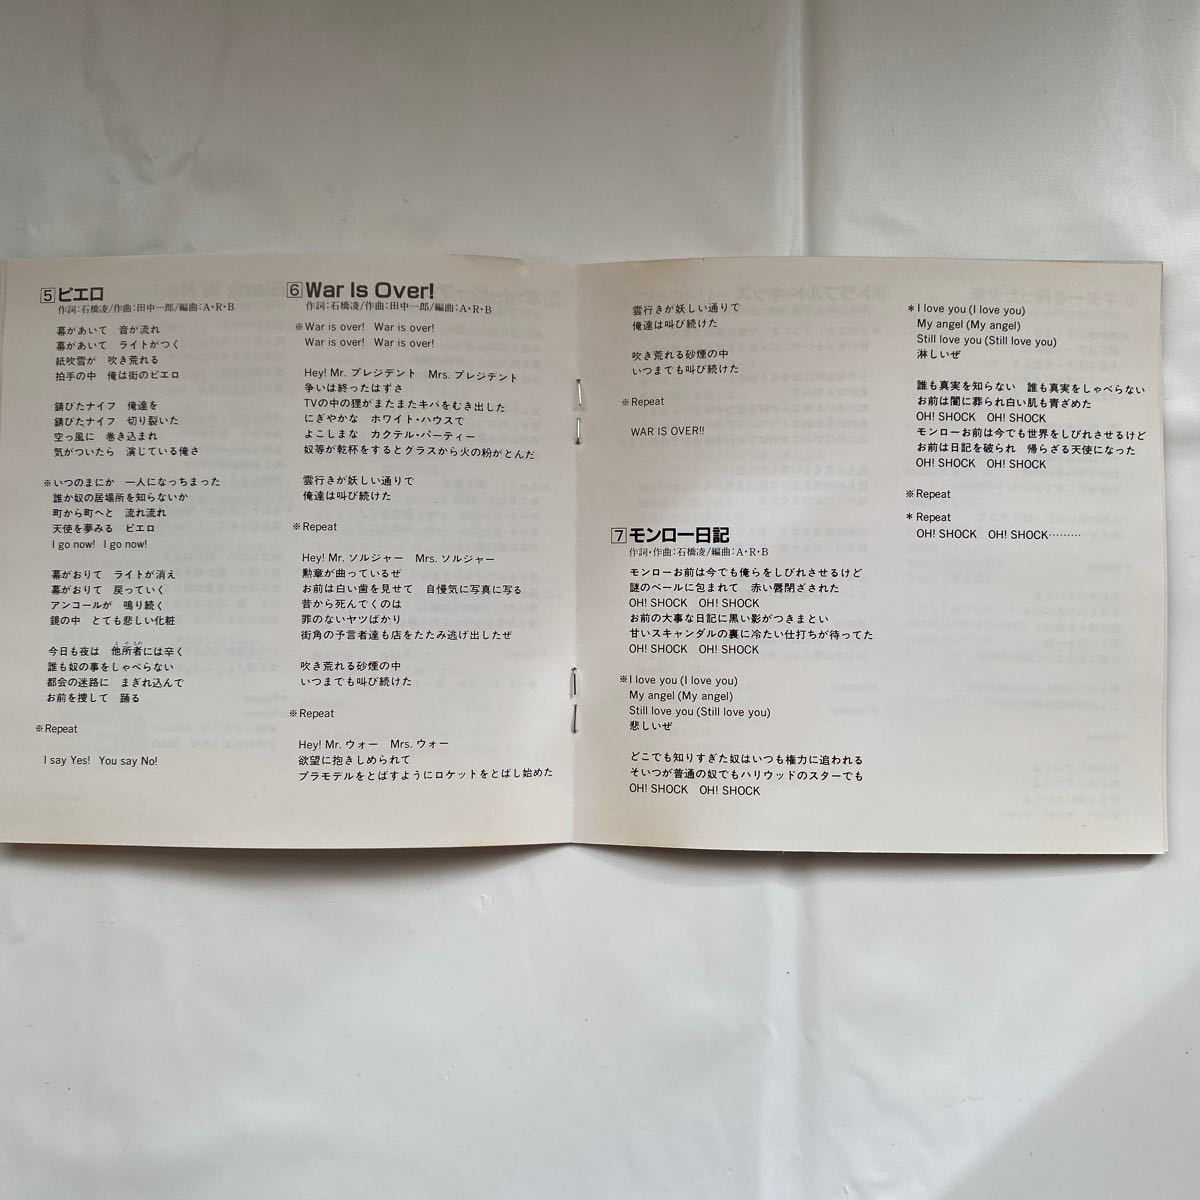 5 ピエロ
作詞:石橋凌/作曲:田中一郎/編曲:A・R・B
幕があいて 音が流れ
幕があいて ライトがつく
紙吹雪が 吹き荒れる
拍手の中 俺は街のピエロ
錆びたナイフ 俺達を
錆びたナイフ 切り裂いた
空っ風に 巻き込まれ
気がついたら 演じている俺さ
※いつのまにか 一人になっちまった
誰か奴の居場所を知らないか
町から町へと 流れ流れ
天使を夢みる ピエロ
I go now! I go now!
幕がおりて ライトが消え
幕がおりて 戻っていく
アンコールが 鳴り続く
鏡の中 とても悲しい化粧
今日も夜は 他所者には辛く
誰も奴の事をしゃべらない
都会の迷路に まぎれ込んで
お前を捜して 踊る
※Repeat
I say Yes! You say No!
6 War Is Over!
作詞:石橋凌/作曲:田中一郎/編曲:A・R・B
※War is over! War is over!
War is over! War is over!
Hey! Mr. プレジデント Mrs. プレジデント
争いは終ったはずさ
TVの中の狸がまたまたキバをむき出した
にぎやかな ホワイト・ハウスで
よこしまな カクテル・パーティー
奴等が乾杯をするとグラスから火の粉がとんだ
雲行きが妖しい通りで
俺達は叫び続けた
※Repeat
Hey! Mr. ソルジャー Mrs. ソルジャー
勲章が曲っているぜ
お前は白い歯を見せて 自慢気に写真に写る
昔から死んでくのは
罪のないヤツばかり
街角の予言者達も店をたたみ逃げ出したぜ
吹き荒れる砂煙の中
いつまでも叫び続けた
※Repeat
Hey! Mr. ウォー Mrs. ウォー
欲望に抱きしめられて
プラモデルをとばすようにロケットをとばし始めた
雲行きが妖しい通りで
俺達は叫び続けた
吹き荒れる砂煙の中
いつまでも叫び続けた
※Repeat
WAR IS OVER!!
7 モンロー日記
作詞・作曲:石橋凌/編曲:A・R・B
モンローお前は今でも俺らをしびれさせるけど
謎のベールに包まれて 赤い唇閉ざされた
OH! SHOCK OH! SHOCK
お前の大事な日記に黒い影がつきまとい
甘いスキャンダルの裏に冷たい仕打ちが待ってた
OH! SHOCK OH! SHOCK
※I love you (I love you)
My angel (My angel)
Still love you (Still love you)
悲しいぜ
どこでも知りすぎた奴はいつも権力に追われる
そいつが普通の奴でもハリウッドのスターでも
OH! SHOCK OH! SHOCK
＊I love you (I love you)
My angel (My angel)
Still love you (Still love you)
淋しいぜ
誰も真実を知らない 誰も真実をしゃべらない
お前は闇に葬られ白い肌も青ざめた
OH! SHOCK OH! SHOCK
モンローお前は今でも世界をしびれさせるけど
お前は日記を破られ 帰らざる天使になった
OH! SHOCK OH! SHOCK
※Repeat
＊Repeat
OH! SHOCK OH! SHOCK………